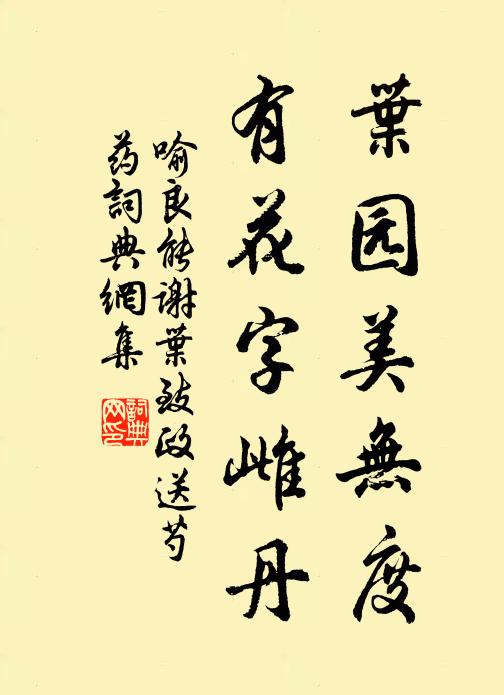 葉园美無度
有花字雌丹
喻良能谢葉致政送芍
药詞典網集
詞典
网印